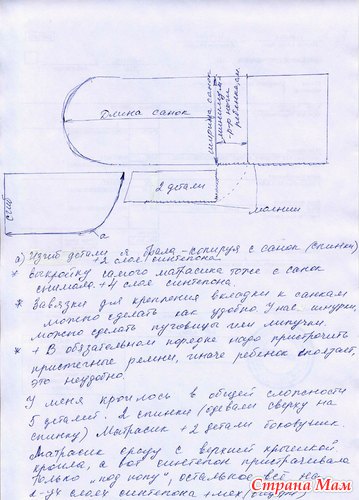 Длина санок
ширина санок
минимум
ноги
ребенка
2 детали
молния
сгиб
а
а) Изгиб детали я брала - копируя с санок (спинки)
+2 слоя синтепона
* Выкройку самого матрасика тоже с санок
снимала. +4 слоя синтепона.
* Завязки для крепления вкладки к санкам
можно сделать как удобно. У нас шнурки,
можно сделать пуговицы или липучки.
* + В обязательном порядке надо пристрочить
пристежные ремни, иначе ребенок сползает,
это неудобно.
У меня кроилось в общей сложности
5 деталей. 2 спинки (одевали сверху на
спинку) Матрасик + 2 детали боковушек.
Матрасик сразу с верхней крышкой
кроила, а вот синтепон пристрачивала
только "под попу", остальное всё на
слоях синтепона + мех
Страна Мам